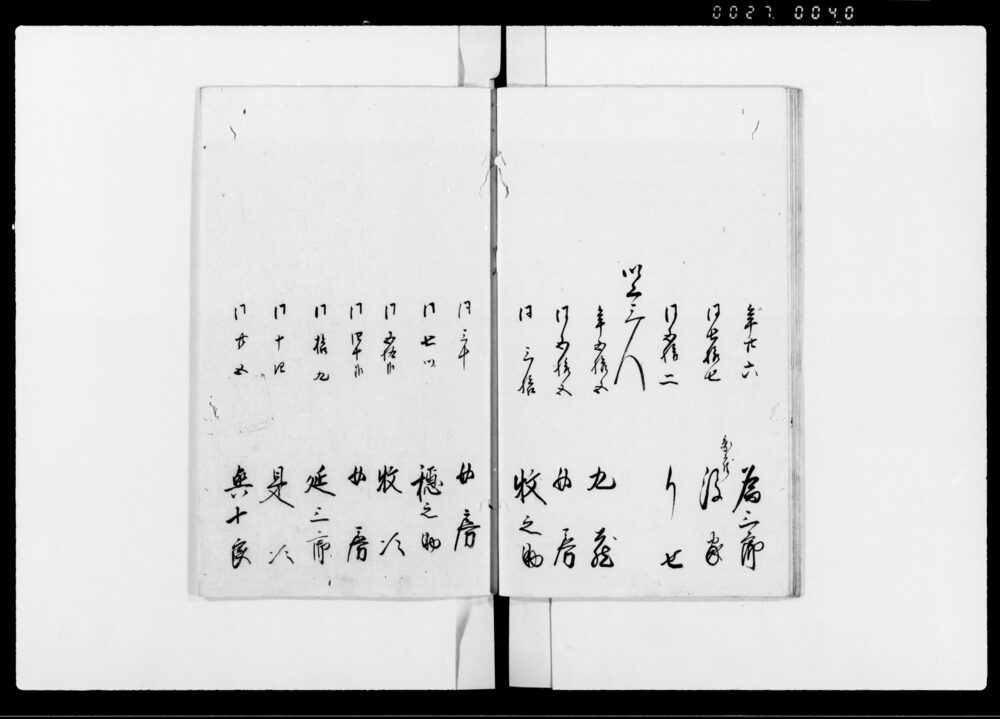 0027 0040
年廿六 為三郎
同七拾七 後家
同五拾二
〆三人
年五拾五 九蔵
同五拾五 女房
同 三拾 牧之助
同 三十 女房
同 七ツ 穏之助
同 五拾八 牧次
同 四十八 女房
同 拾九 延三郎
同 十四 是次
同 廿五 与十良